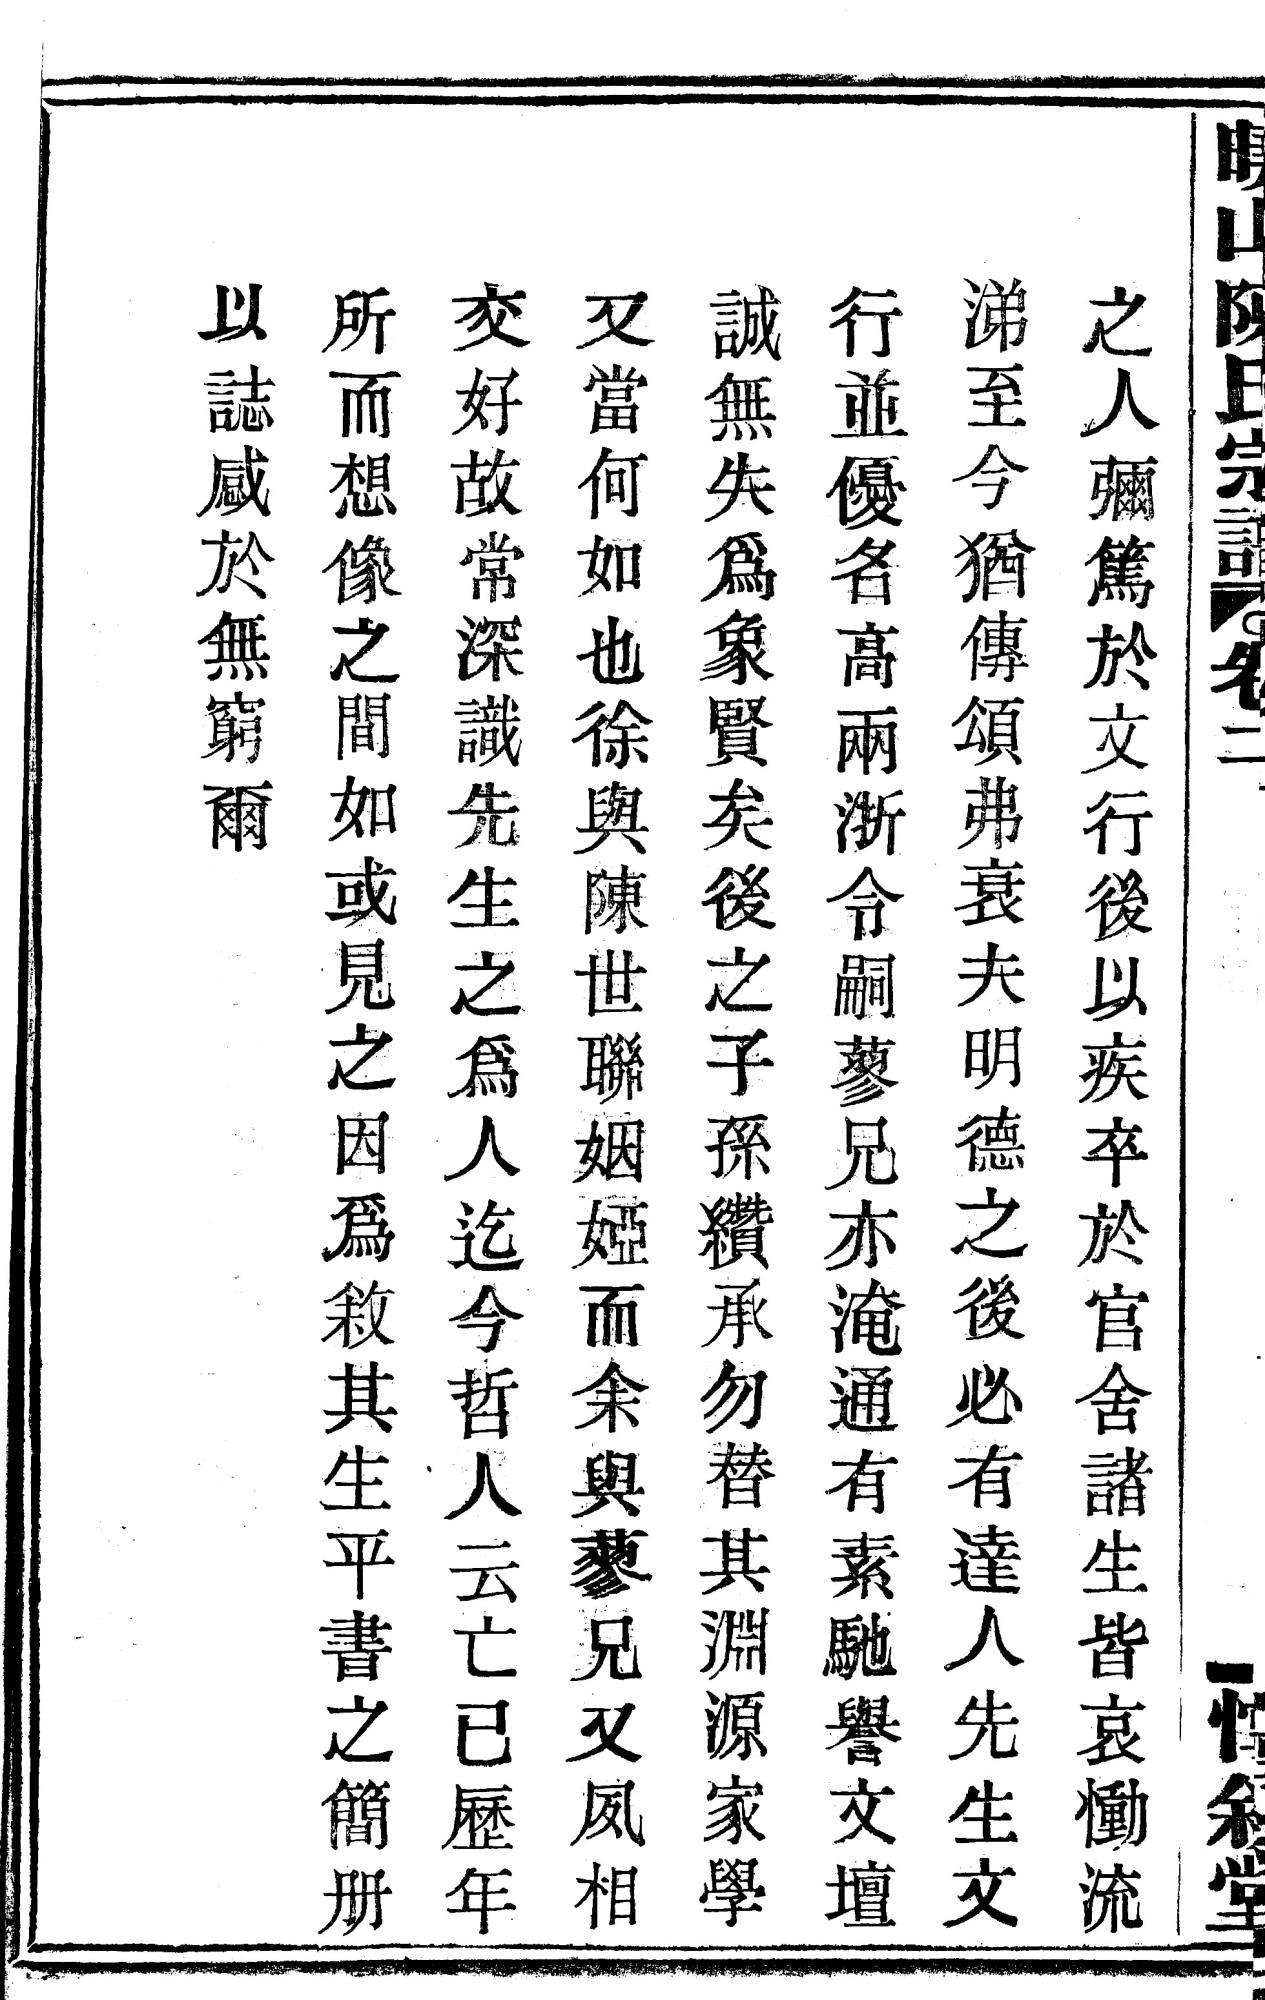 山陳氏宗譜 卷二
堂
之人彌篤於文行後以疾卒於官舍諸生皆哀慟流
涕至今猶傳頌弗衰夫明德之後必有達人先生文
行並優名高兩浙令嗣蓼兄亦淹通有素馳譽文壇
誠無失爲象賢矣後之子孫纘承勿替其淵源家學
又當何如也徐與陳世聯姻婭而余與蓼兄又夙相
交好故常深識先生之爲人迄今哲人云亡已歷年
所而想像之間如或見之因爲敘其生平書之簡册
以誌感於無窮爾